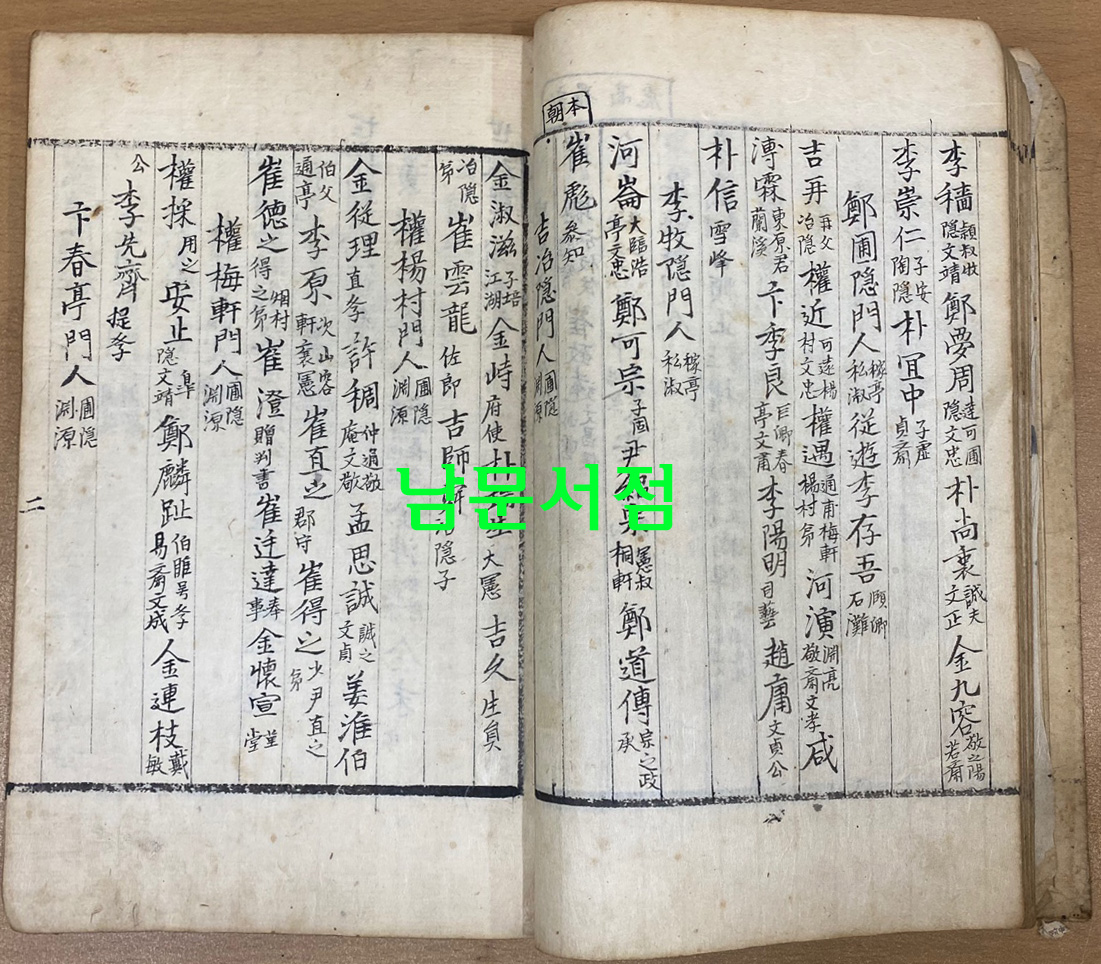 本朝
李穡 穎叔牧隱文靖 鄭夢周 達可圃隱文忠 朴尚衷 誠夫文正 金九容 敬之陽若齋
李崇仁 子安陶隱 朴宜中 子虛貞齋
鄭圃隱門人 稼亭私淑 從遊李存吾 順卿石灘
吉再 再父冶隱 權近 可遠楊村文忠 權遇 通甫梅軒楊村弟 河演 淵亮敬齋文孝 咸
溥霖 東原君蘭溪 卞季良 巨卿春亭文肅 李陽明 目藝 趙庸 文貞公
朴信 雪峰
李牧隱門人 稼亭私淑
河崙 大臨浩亭文忠 鄭可宗 子因 尹紹宗 憲叔桐軒 鄭道傳 宗之政丞
崔彪 叅知
吉冶隱門人 圃隱淵源
金淑滋 子培江湖 金峙 府使 朴 生 大憲 吉久 生員
冶隱弟 崔雲龍 佐郎 吉師 冶隱子
權楊村門人 圃隱淵源
金從理 直孝 許稠 仲通敬庵文敬 孟思誠 誠之文貞 姜淮伯
伯父通亭 李原 次山容軒襄憲 崔直之 郡守 崔得之 少尹直之弟
崔德之 烟村得之弟 崔澄 贈判書 崔廷達 奉事 金懷宣 萱堂
權梅軒門人 圃隱淵源
權採 用之 安止 皐隱文靖 鄭麟趾 伯睢号學易齋文成 金連枝 戴敏
公 李先齊 提學
卞春亭門人 圃隱淵源
二
남문서점